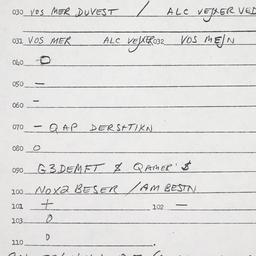 030 VOS MER DUVEST / ALC VEJXER VED
031 VOS MER ALC VEJXER 032 VOS MEJN
040 O
050 –
060 –
070 – QAP DERSATIKN
080 O
090 G3DEMFT & QAMER'$
100 NOX2 BESER / AM BESTN
101 + 102 –
103 O
110 O